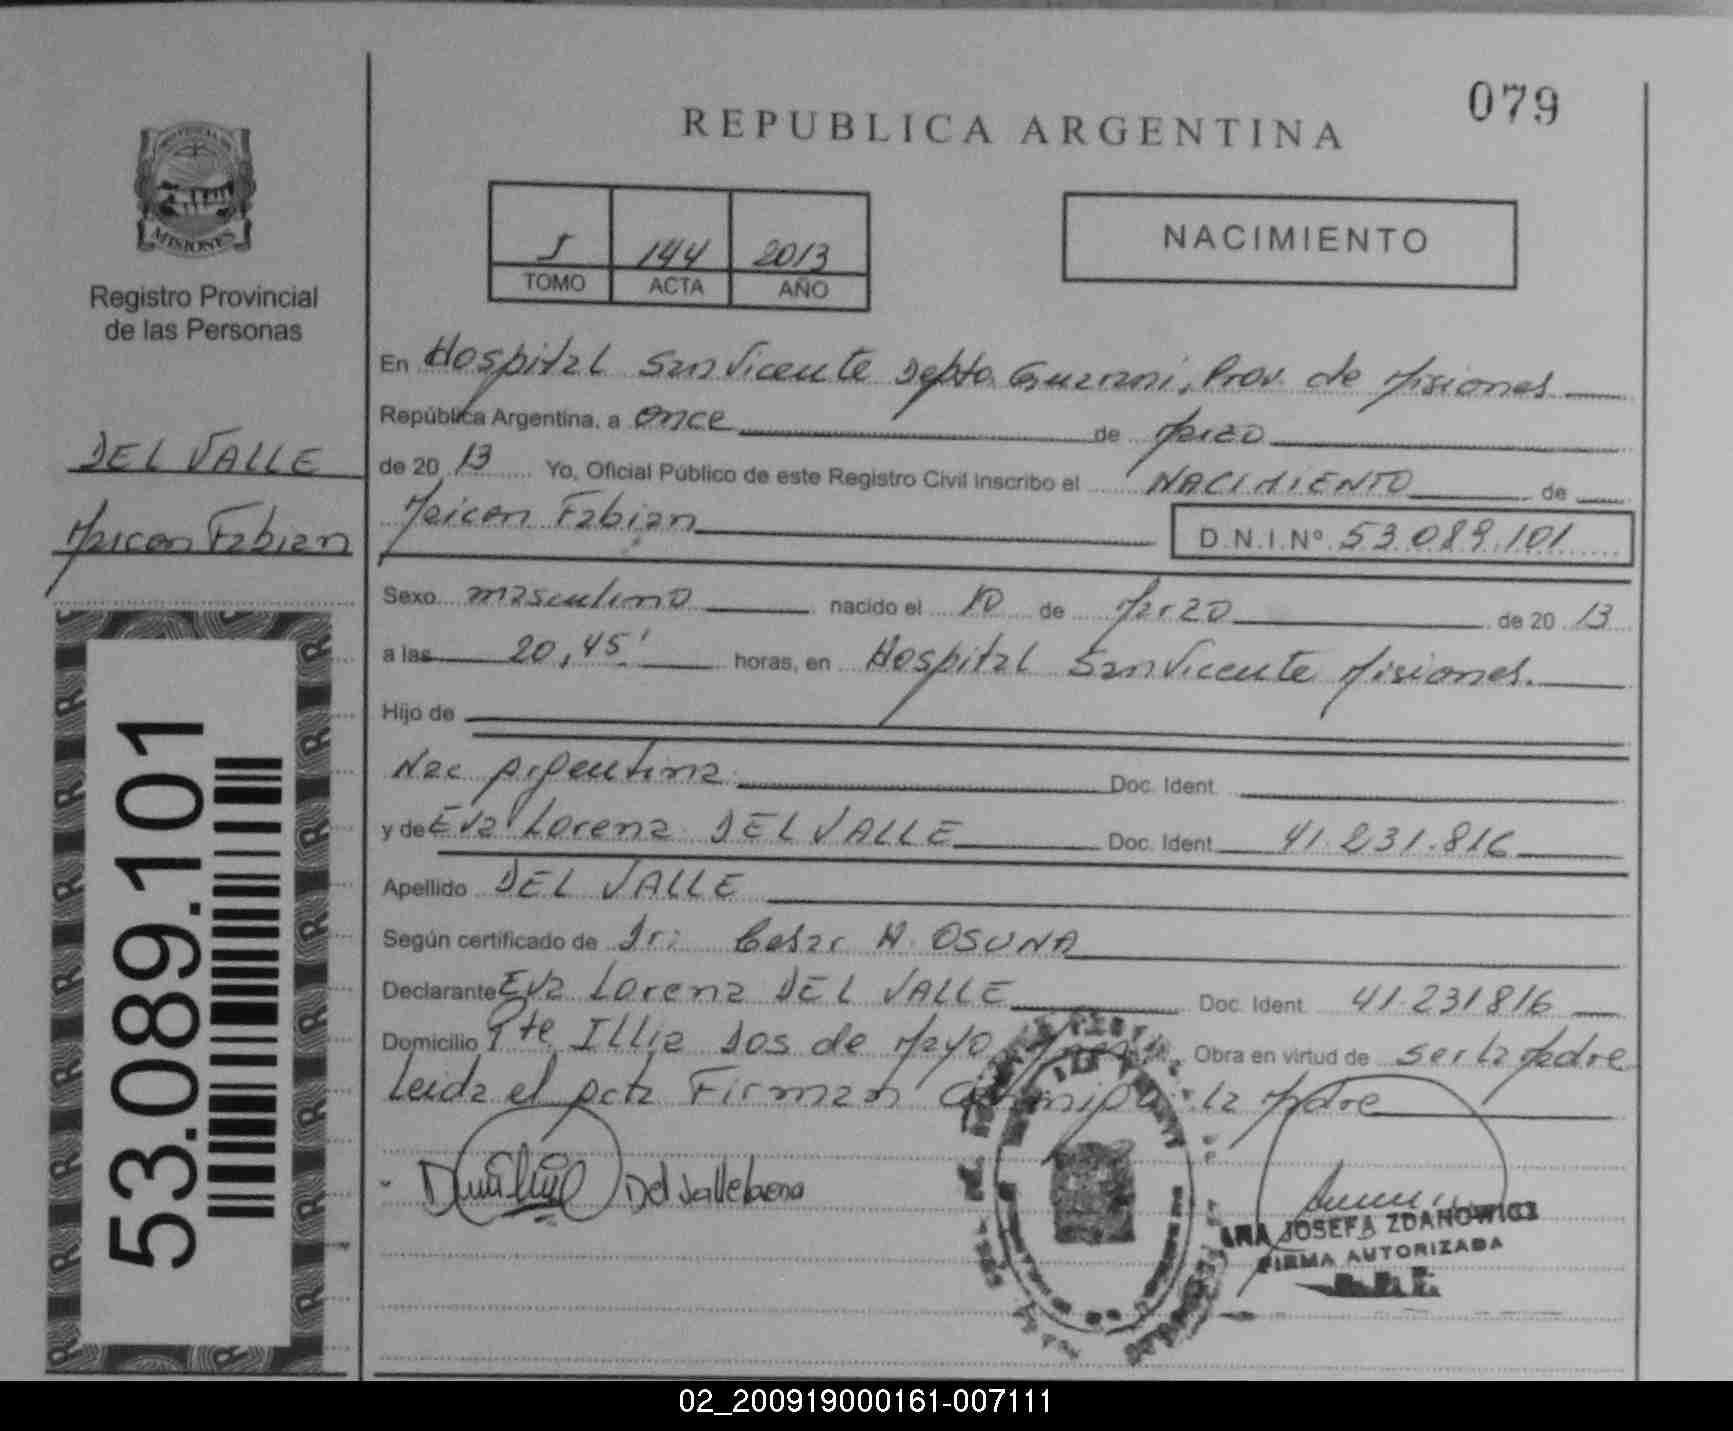 079
REPUBLICA ARGENTINA
MISIONES
Registro Provincial
de las Personas
DEL VALLE
Maicon Fabian
53.089.101
5 144 2013
TOMO ACTA AÑO
NACIMIENTO
En Hospital San Vicente Depto Guarani, Prov. de Misiones
República Argentina, a once de Marzo
de 20 13 Yo, Oficial Público de este Registro Civil inscribo el NACIMIENTO de
Maicon Fabian D.N.I.Nº 53.089.101
Sexo masculino nacido el 10 de Marzo de 20 13
a las 20,45' horas, en Hospital San Vicente Misiones.
Hijo de
Nac Argentina Doc. Ident.
y de Eva Lorena DEL VALLE Doc. Ident. 41.231.816
Apellido DEL VALLE
Según certificado de Dr: Cesar A. OSUNA
Declarante Eva Lorena DEL VALLE Doc. Ident. 41.231816
Domicilio Pte Illia Dos de Mayo Obra en virtud de ser la Madre
Leida el Acta Firman la Madre
Del Valle Lorena
ANA JOSEFA ZDANOWICZ
FIRMA AUTORIZADA
02_200919000161-007111